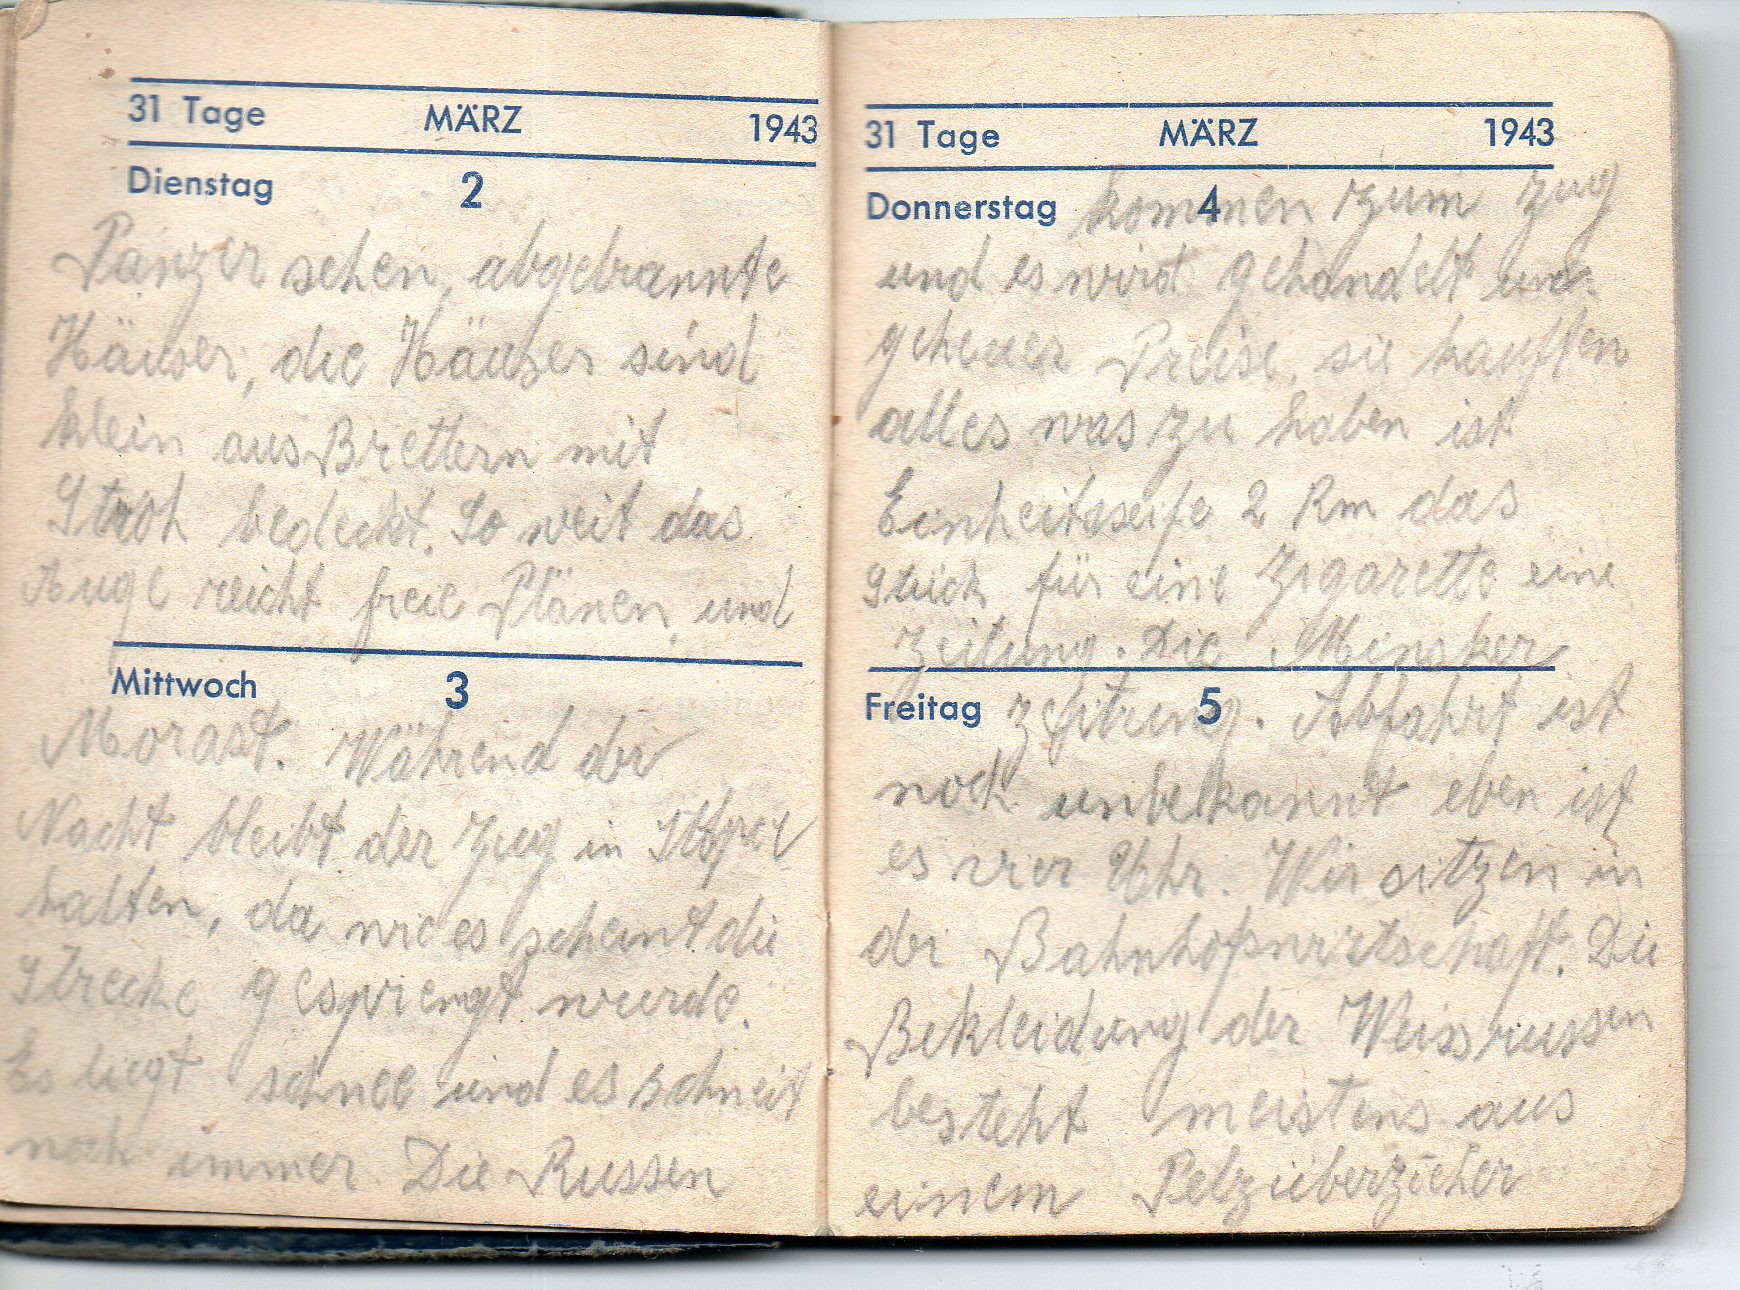 31 Tage MÄRZ 1943
Dienstag 2
Panzer sehen, abgebrannte
Häuser, die Häuser sind
klein aus Brettern mit
Stroh bedeckt. So weit das
Auge reicht freie Plänen und
Mittwoch 3
Morast. Während der
Nacht bleibt der Zug in
halten, da wie es scheint die
Strecke gesprengt wurde.
Es liegt schnee und es schneit
noch immer. Die Russen
31 Tage MÄRZ 1943
Donnerstag 4 kommen zum Zug
und es wird gehandelt und
geheuer Preise, sie kauften
alles was zu haben ist
Einheitsseife 2 Rm das
Stück für eine Zigarette eine
Zeitung. Die Minsker
Freitag 5 Zeitung. Abfahrt ist
noch unbekannt eben ist
es vier Uhr. Wir sitzen in
der Bahnhofswirtschaft. Die
Bekleidung der Weissrussen
besteht meistens aus
einem Pelzüberzieher